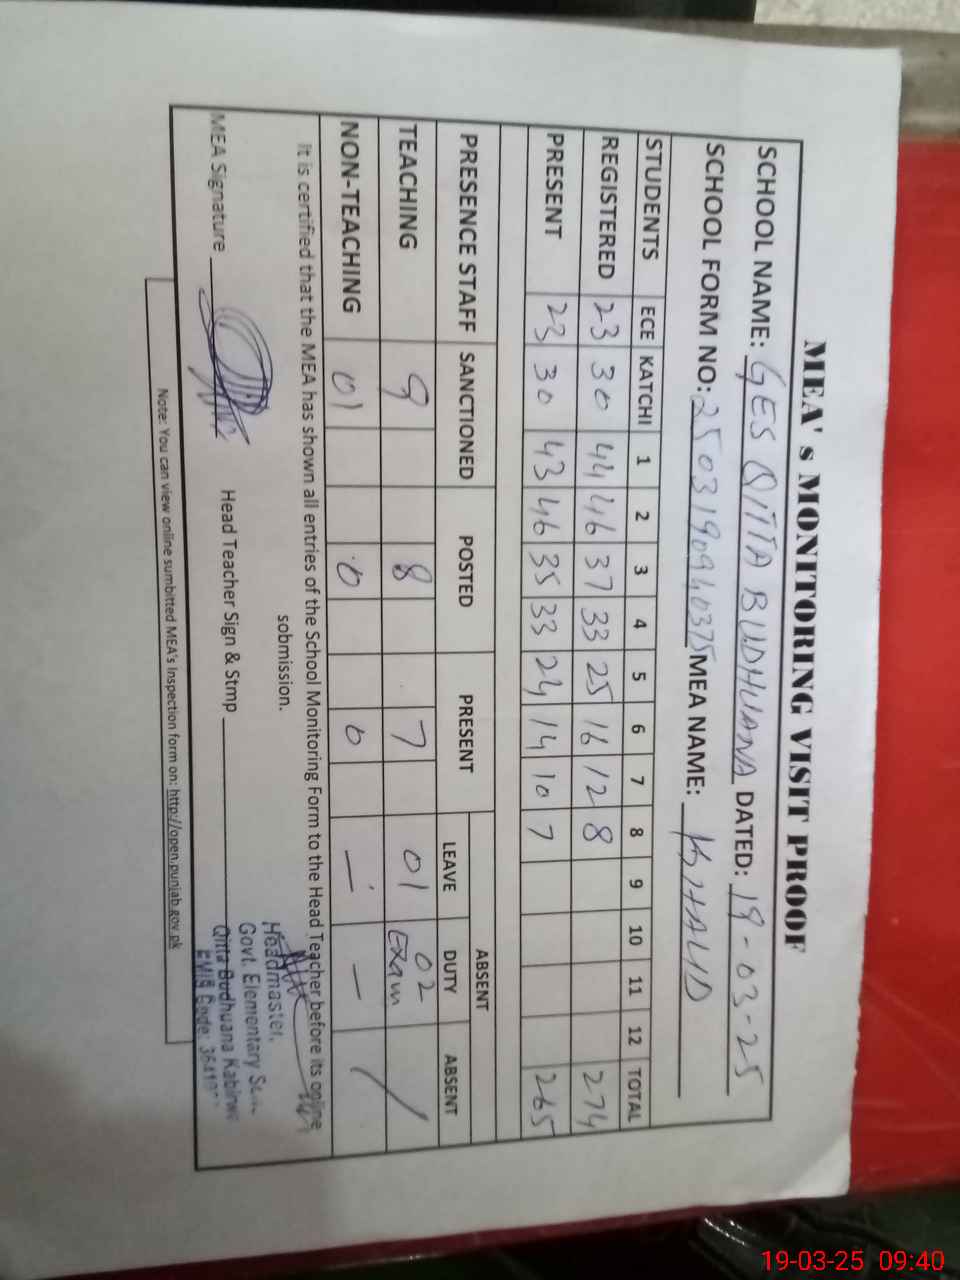 MEA' s MONITORING VISIT PROOF
SCHOOL NAME: GES QITTA BUDHUANA DATED: 19-03-25
SCHOOL FORM NO: 2503190940375 MEA NAME: KHALID
STUDENTS ECE KATCHI 1 2 3 4 5 6 7 8 9 10 11 12 TOTAL
REGISTERED 23 30 44 46 37 33 25 16 12 8 274
PRESENT 23 30 43 46 35 33 24 14 10 7 265
PRESENCE STAFF SANCTIONED POSTED PRESENT ABSENT
LEAVE DUTY ABSENT
TEACHING 9 8 7 01 02 Exam /
NON-TEACHING 01 0 0 — — /
It is certified that the MEA has shown all entries of the School Monitoring Form to the Head Teacher before its online
sobmission.
MEA Signature Head Teacher Sign & Stmp
Headmaster,
Govt. Elementary
Qitta Budhuana
EMIS Code:
Note: You can view online sumbitted MEA's Inspection form on: http://open.punjab.gov.pk
19-03-25 09:40